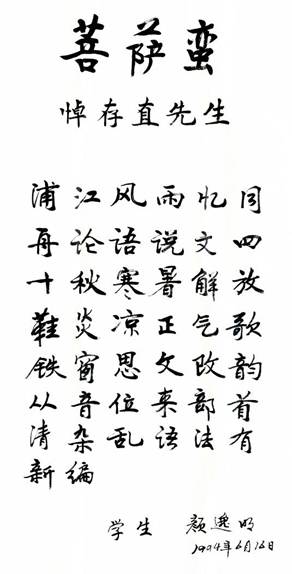 菩萨蛮
悼存直先生
浦江风雨忆同
舟论语说文四
十秋寒暑解放
鞋炎凉正气歌
铁窗思文改韵
从音位来部首
清杂乱语法有
新编
学生 颜逸明
1994年6月16日